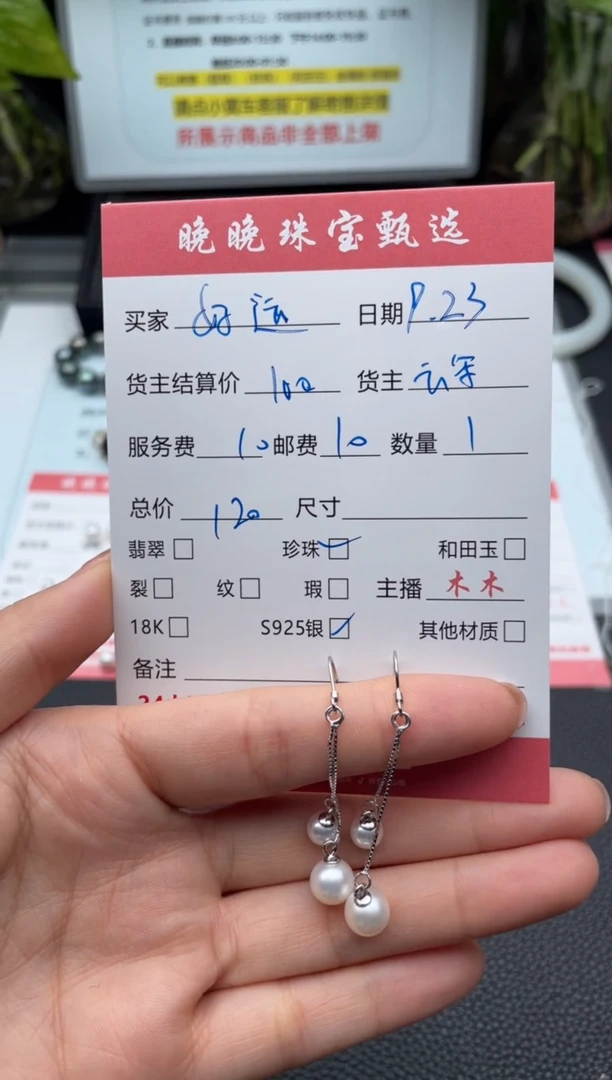 所展示商品非全部上架
晚晚珠宝甄选
买家 好运 日期 9.23
货主结算价 100 货主 云罕
服务费 10 邮费 10 数量 1
总价 120 尺寸
翡翠 珍珠 和田玉
裂 纹 瑕 主播 木木
18K S925银 其他材质
备注